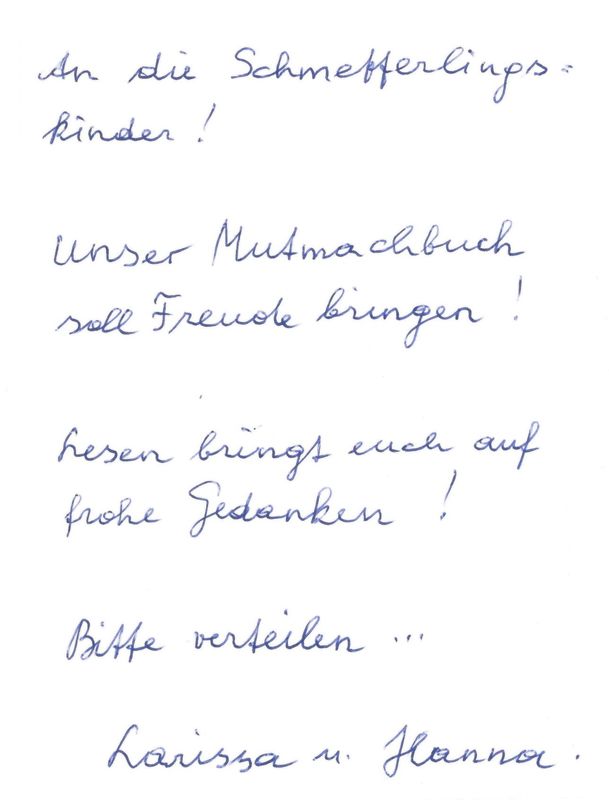 An die Schmetterlings-
kinder!
Unser Mutmachbuch
soll Freude bringen!
Lesen bringt euch auf
frohe Gedanken!
Bitte verteilen ...
Larissa u. Hanna.